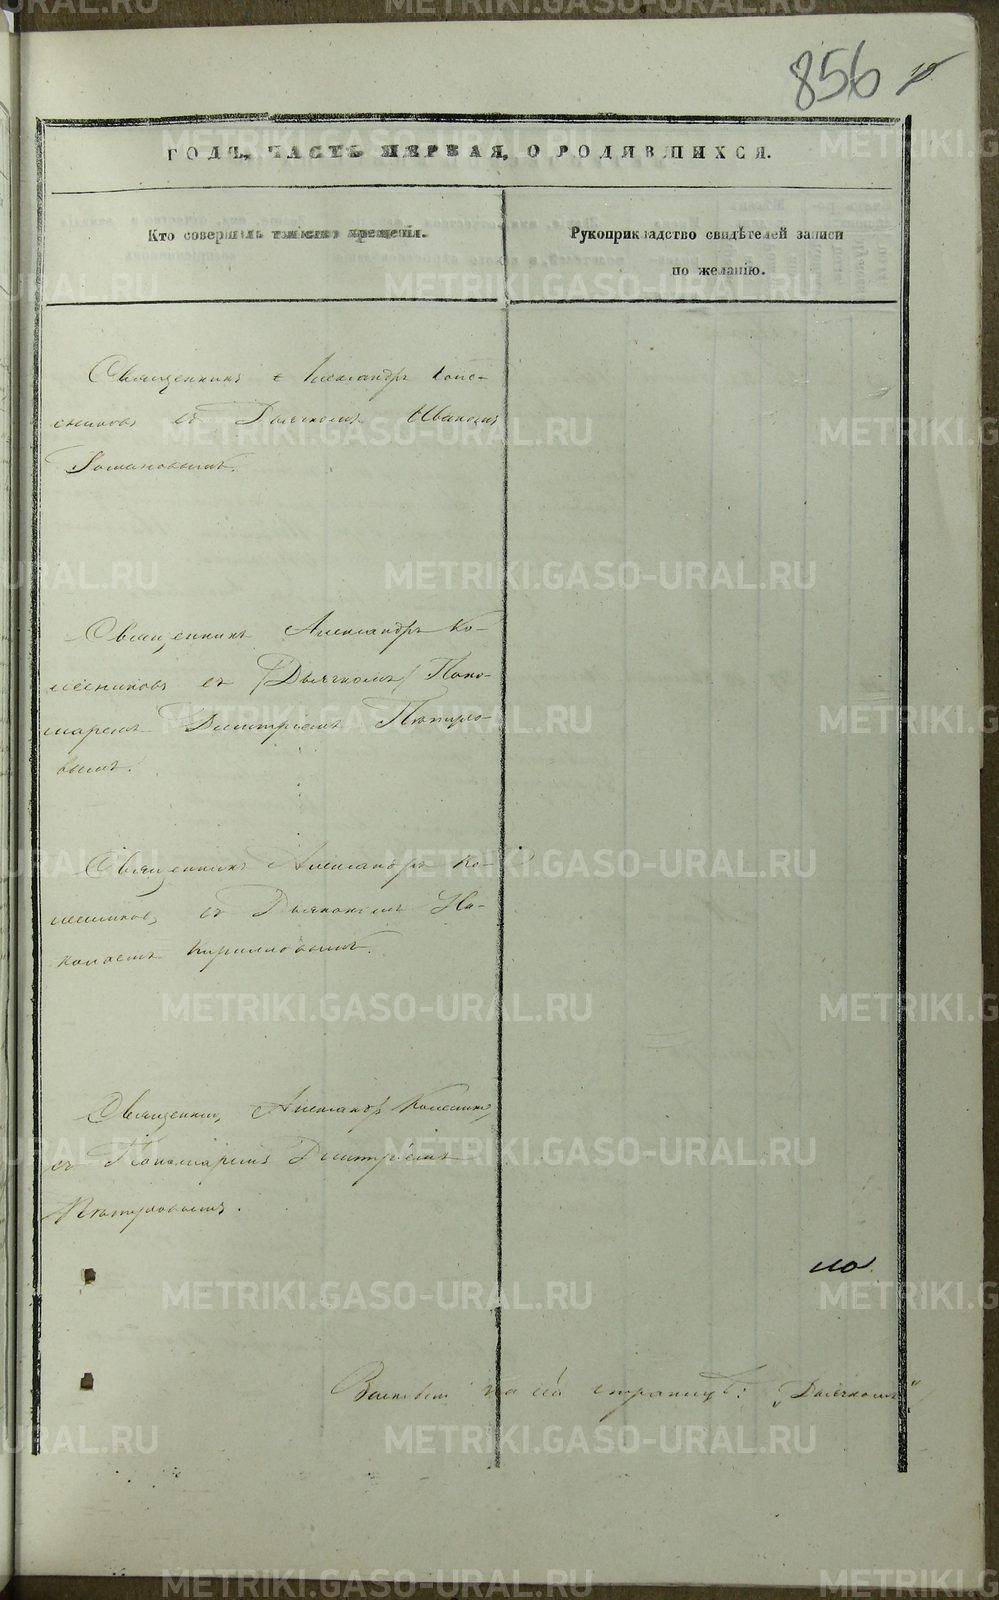 856
ГОДЪ, ЧАСТЬ ПЕРВАЯ, О РОДИВШИХСЯ.
Кто совершалъ таинство крещенія.
Рукоприкладство свидѣтелей записи
по желанію.
Священникъ Александръ Колес-
никовъ съ Дьячкомъ Иваномъ
Романовымъ.
Священникъ Александръ Ко-
лесниковъ съ /Дьячкомъ/ Поно-
маремъ Димитріемъ
вымъ.
Священникъ Александръ Ко-
лесниковъ съ Дьякономъ Ни-
колаемъ Кирилловымъ.
Священникъ Александръ Колесник
съ Пономаремъ Димитріемъ
но
на сей страницѣ: „Дьячкомъ“
METRIKI.GASO-URAL.RU